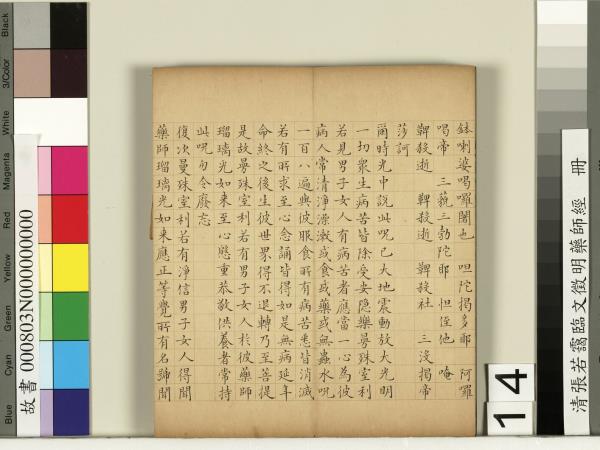 鉢喇婆喝囉闍也 呾陀揭多耶 阿囉
喝帝 三藐三勃陀耶 怛姪他 唵
鞞殺逝 鞞殺逝 鞞殺社 三沒揭帝
莎訶
爾時光中說此呪已大地震動放大光明
一切眾生病苦皆除受安隱樂曼殊室利
若見男子女人有病苦者應當一心為彼
病人常清淨漱或食或藥或無蟲水呪
一百八遍與彼服食所有病苦悉皆消滅
若有所求至心念誦皆得如是無病延年
命終之後生彼世界得不退轉乃至菩提
是故曼殊室利若有男子女人於彼藥師
瑠璃光如來至心慇重恭敬供養者常持
此呪勿令廢忘
復次曼殊室利若有淨信男子女人得聞
藥師瑠璃光如來應正等覺所有名號聞
清張若靄臨文徵明藥師經 冊
14
故書 000803N000000000
Black
3/Color
White
Magenta
Red
Yellow
Green
Cyan
Blue